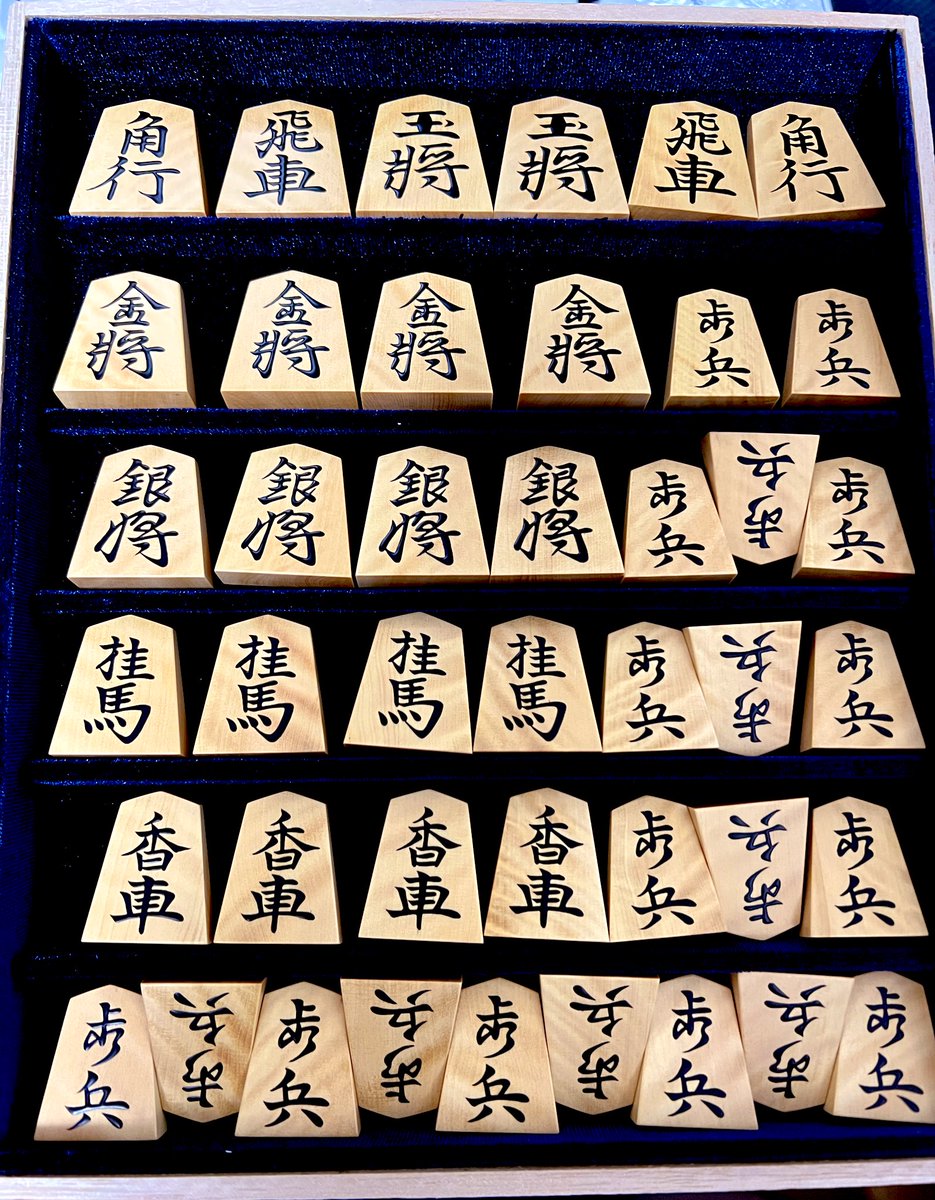 角行
飛車
玉將
玉將
飛車
角行
金將
金將
金將
金將
歩兵
歩兵
銀将
銀将
銀将
銀将
歩兵
歩兵
歩兵
桂馬
桂馬
桂馬
桂馬
歩兵
歩兵
歩兵
香車
香車
香車
香車
歩兵
歩兵
歩兵
歩兵
歩兵
歩兵
歩兵
歩兵
歩兵
歩兵
歩兵
歩兵